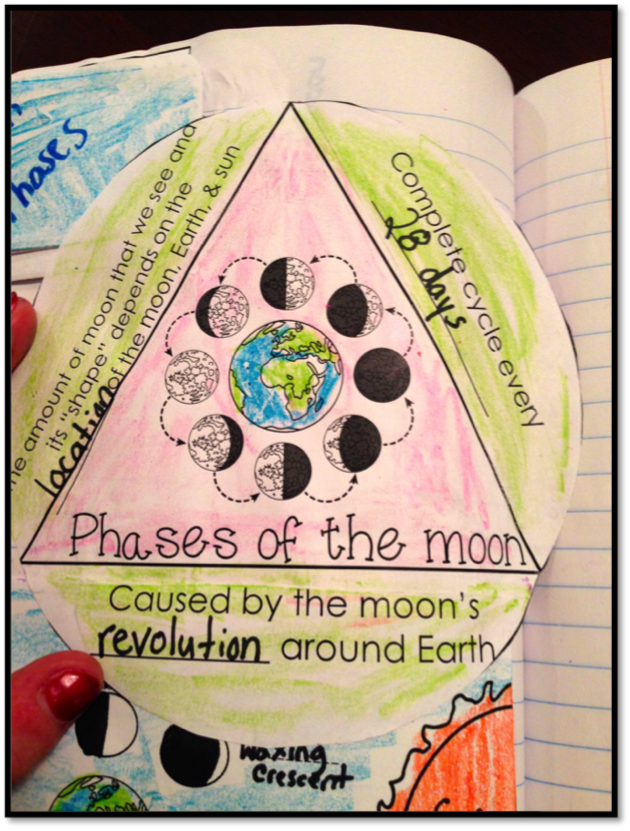 hases
he amount of moon that we see and
its "shape" depends on the
location of the moon, Earth, & sun
Complete cycle every
28 days
Phases of the moon
Caused by the moon's
revolution around Earth
waxing
crescent